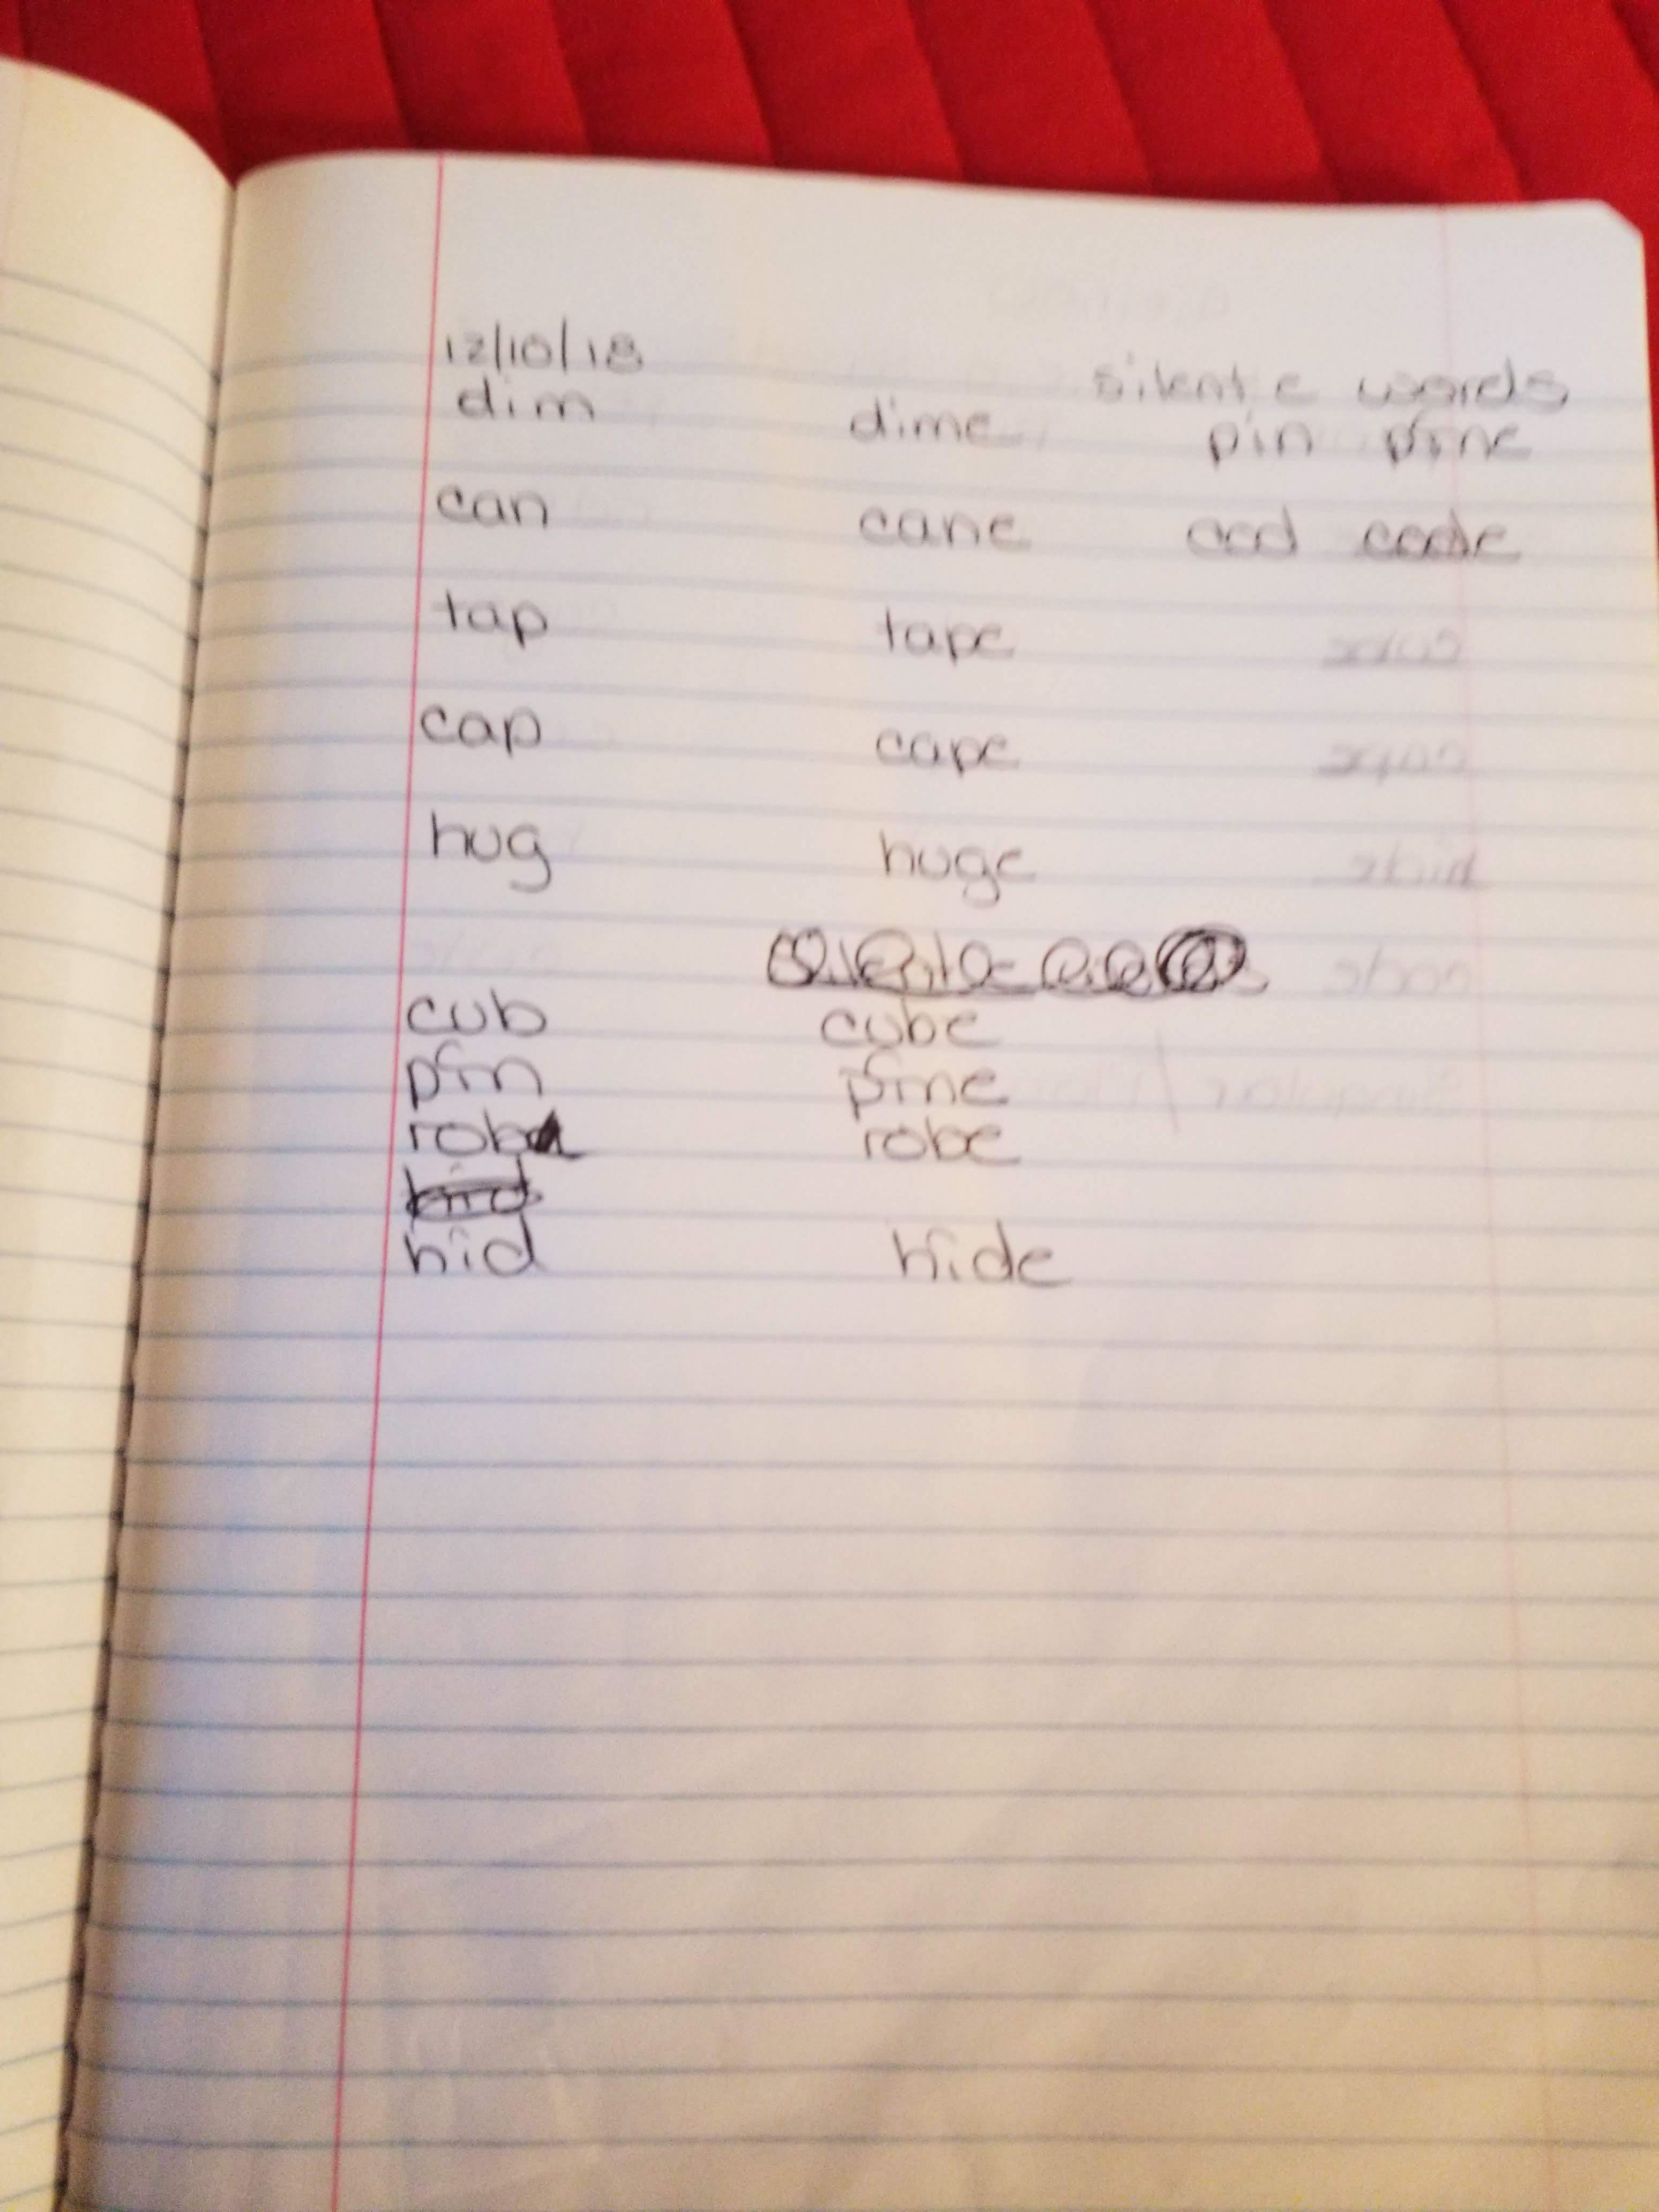 12/10/18
silent e words
dim dime pin pine
can cane cod code
tap tape
cap cape
hug huge
cub cube
pin pine
rob robe
hid hide